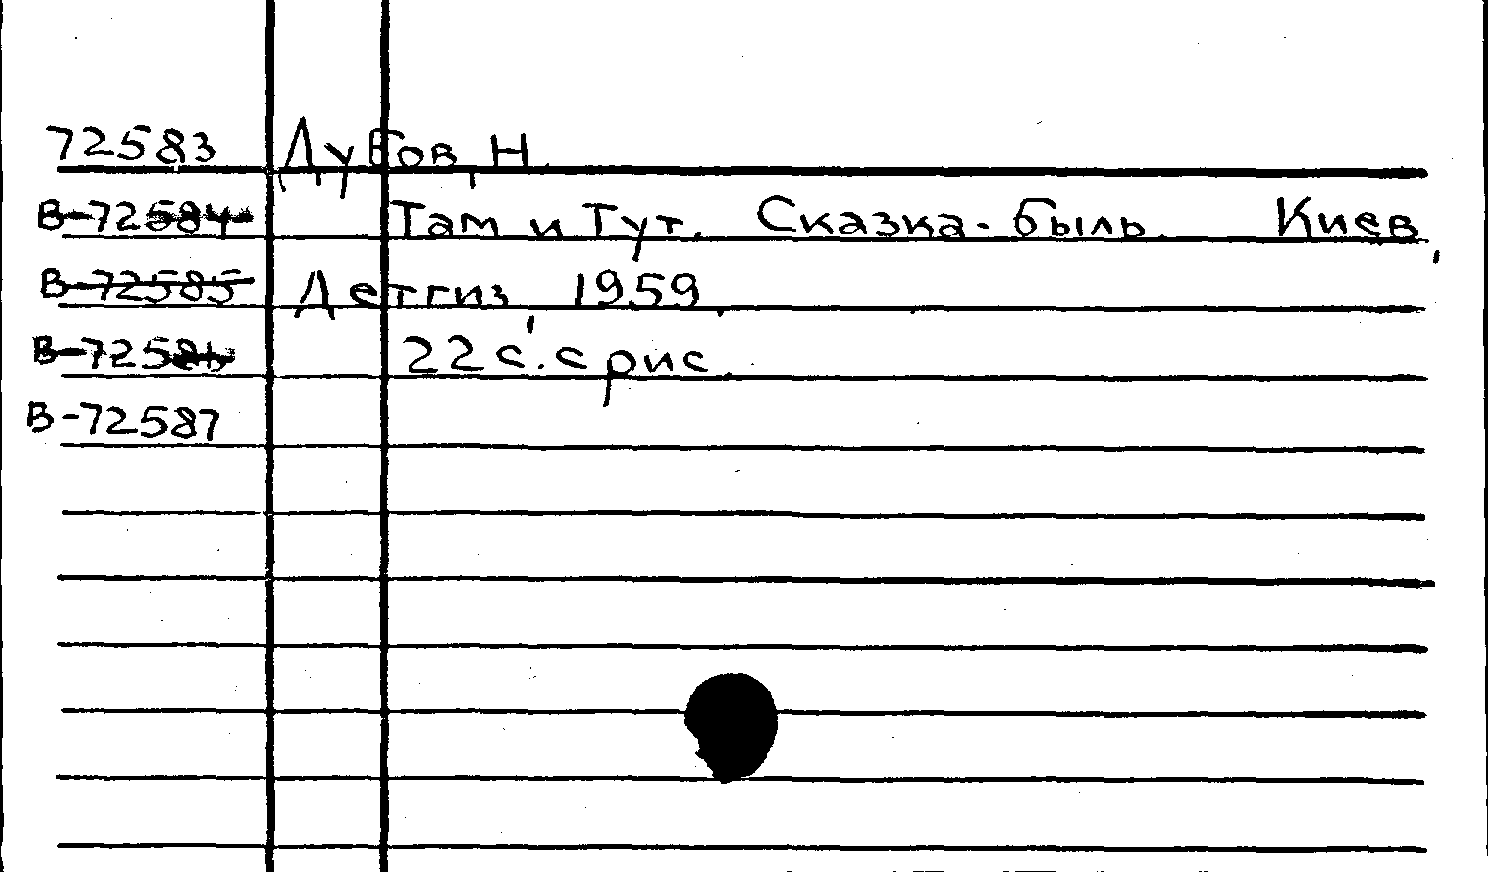 72583 Дубов, Н.
В-72584 Там и Тут. Сказка-быль. Киев,
В-72585 Детгиз, 1959.
В-72586 22 с. с рис.
В-72587